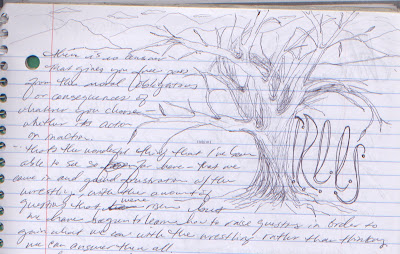 there is no answer
that gives you free pass
from the moral obligations
or consequences of
whatever you choose
whether its action
or inaction.
that's the wonderful thing that I've been
able to see so far here - that we
came in and frustrations of the
wrestling with the amount of
questions that were risen about
we have begun to learn how to raise questions in order to
gain what we can with the wrestling rather than thinking
we can answer them all.